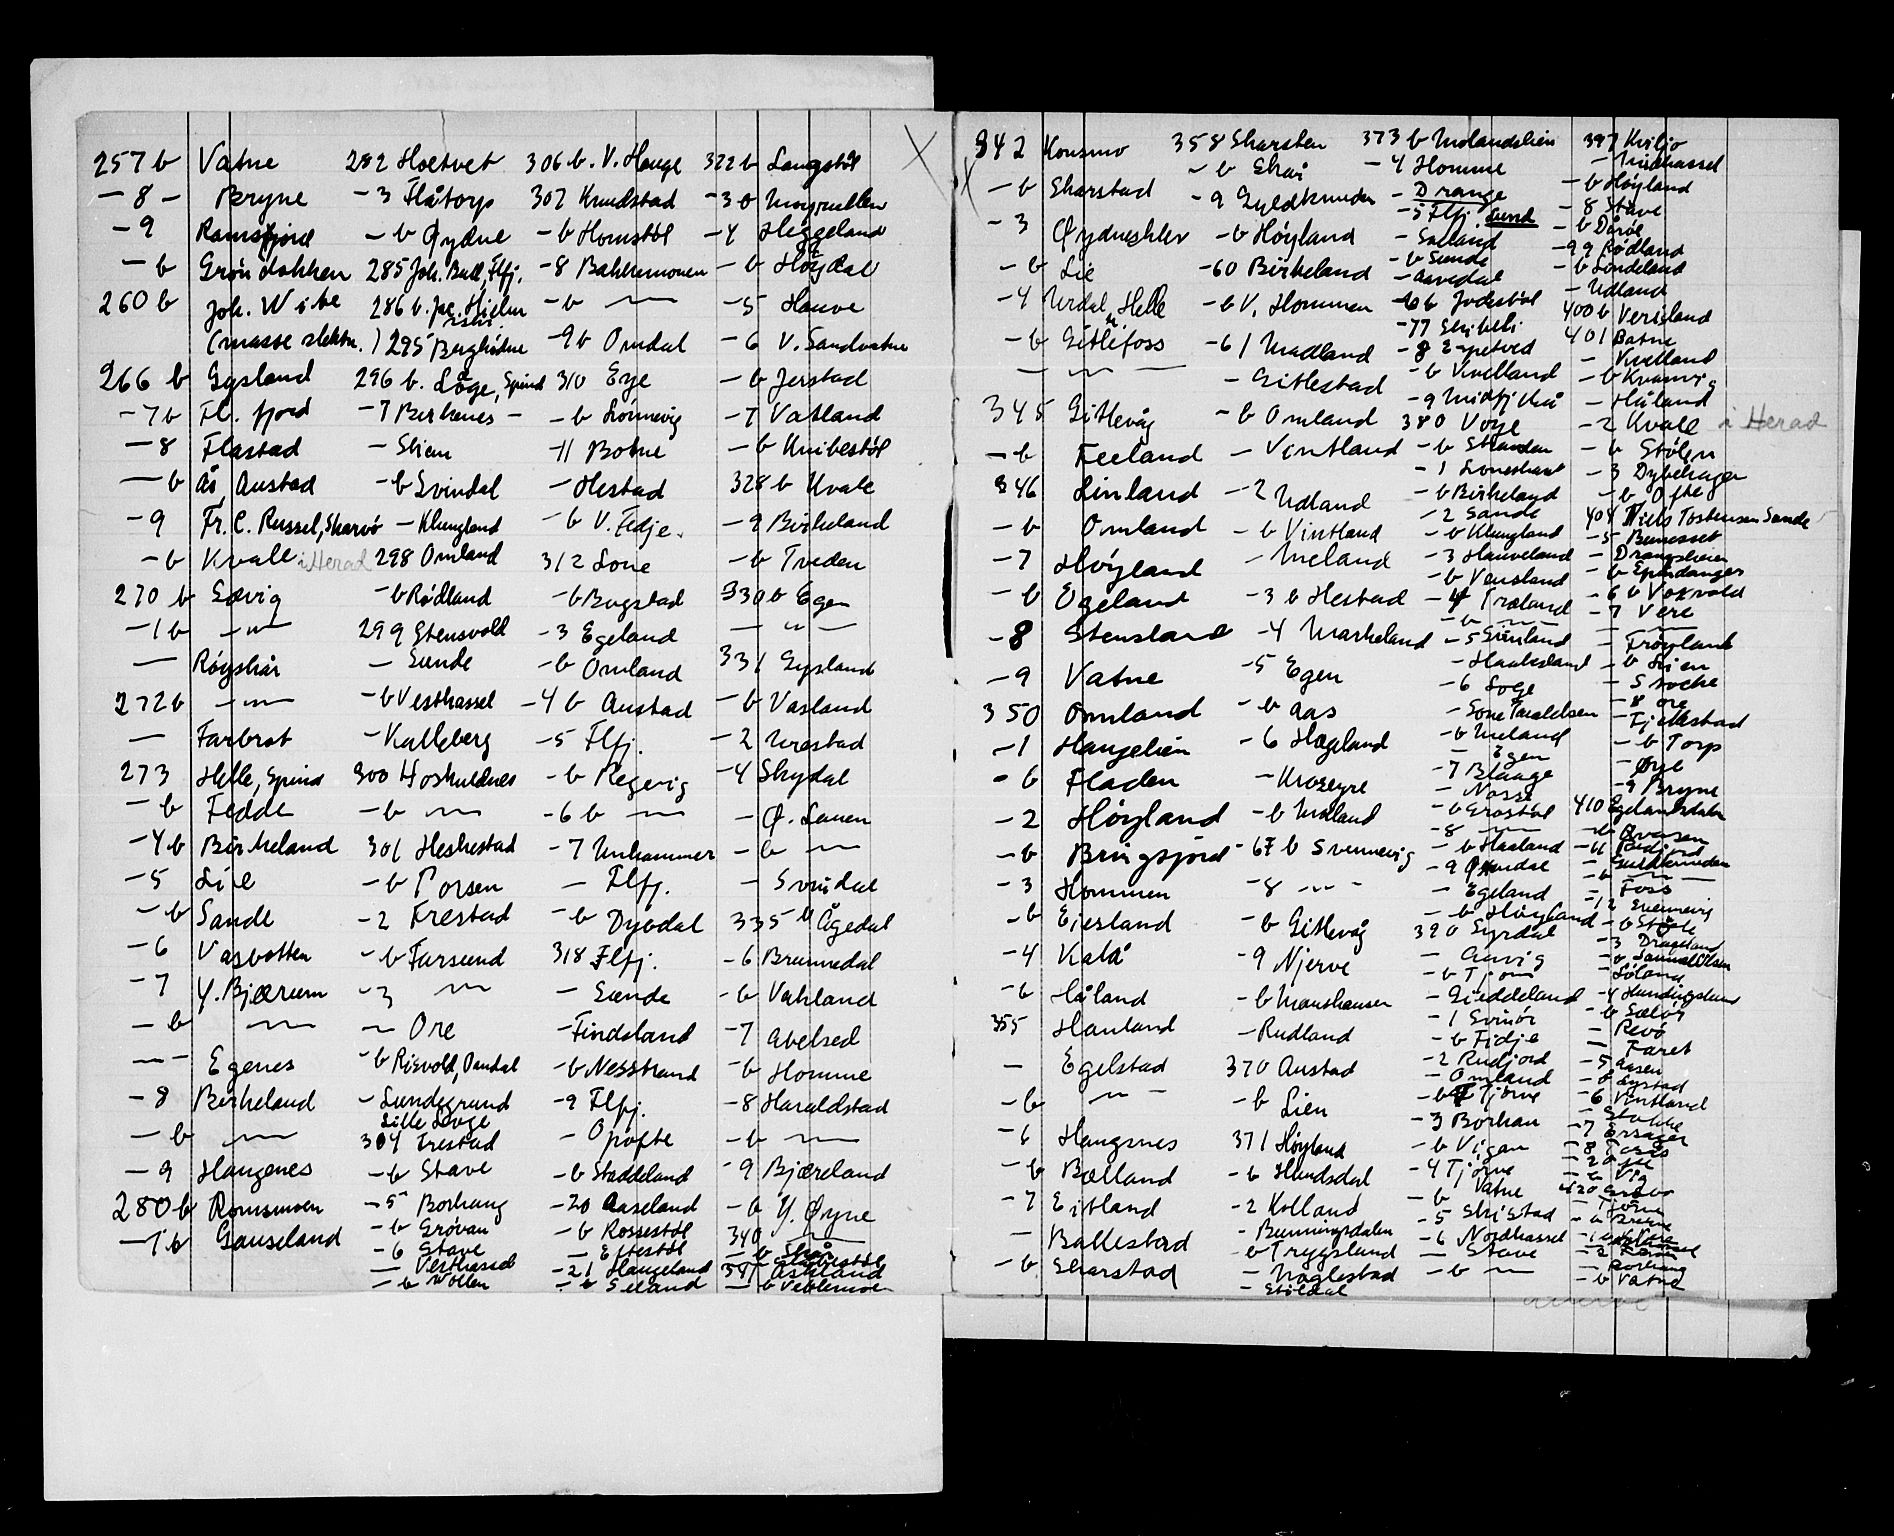 257 b Vatne
- 8 - Bryne
- 9 Ramsfjord
- b Grøndokken
260 b Joh. Wibe
(masse slektn.)
266 b Gysland
- 7 b Fl. fjord
- 8 Flastad
- b Ås, Austad
- 9 Fr. C. Russel, Skarvø
- b Kvale i Herad
270 b Sævig
- 1 b - " -
- Røyskår
272 b - " -
- Farbrot
273 Helle, Spind
- b Fedde
- 4 b Birkeland
- 5 Lie
- b Sande
- 6 Vasbotten
- 7 Y. Bjærum
- b - " -
- - Egenes
- 8 Birkeland
- b - " -
- 9 Haugenes
280 b Romsmoen
- 1 b Gauseland
282 Holtvet
- 3 Flåtorp
- b Øydne
285 Joh. Bull, Flfj.
286 b. Jac. Hielm
295 Berghodne
296 b. Låge, Spind
- 7 Birkenes -
- Skien
- b Svindal
- Klungland
298 Omland
- b Rødland
299 Stensvold
- Sunde
- b Vesthassel
- Kalleberg
300 Hoskuldnes
- b - " -
301 Heskestad
- b Porsen
- 2 Frestad
- b Farsund
- 3 - " -
- Ore
- b Risvold, Dundal
- Lundegrund
Lille Lauge
304 Trestad
- b Stave
- 5 Borhaug
- b Grøvan
- 6 Stave
- Vesthassel
- b Wollen
306 b. V. Hauge
307 Knudstad
- b Homstøl
- 8 Bakkemonen
- b - " -
- 9 b Omdal
310 Eye
- b Lonnevig
- 11 Botne
- Hestad
- b V. Fedje.
312 Lone
- b Bugstad
- 3 Egeland
- b Omland
- 4 b Austad
- 5 Flfj.
- b Regevig
- 6 b - " -
- 7 Unhammer
- Flfj.
- b Dybdal
318 Flfj.
- Sunde
- Findsland
- b Nesstrand
- 9 Flfj.
- Opofte
- b Staddeland
- 20 Aaseland
- b Rossestøl
- Eftestøl
- 21 Haugeland
- b Seland
322 b Langstøl
- 30
- 4 Heggeland
- b Høydal
- 5 Hauve
- 6 V. Sandvatne
- b Jerstad
- 7 Vatland
- b Knibestøl
328 b Kvale
- 9 Birkeland
- b Tveden
330 b Egen
- " -
331 Gysland
- b Vasland
- 2 Urestad
- 4 Skydal
- Ø. Lauen
- b - " -
- Svindal
335 b Ågedal
- 6 Brunnedal
- b Vakland
- 7 Abelsed
- b Homme
- 8 Haraldstad
- b - " -
- 9 Bjæreland
- b Y. Øyne
340 - " -
- b Skår
341 Askland
342 Konsmo
- b Skarstad
- 3 Øydneskler
- b Lie
- 4 Urdal, Helle
- b Gitlefoss
- " -
345 Gitlevåg
- b Feeland
346 Linland
- b Omland
- 7 Høyland
- b Egeland
- 8 Stensland
- 9 Vatne
350 Omland
- 1 Haugelien
- b Fladen
- 2 Høyland
- b Bringsjord
- 3 Hommen
- b Eiesland
- 4 Kalå
- b Håland
355 Hauland
- Egelstad
- b - " -
- 6 Haugsnes
- b Bælland
- 7 Eitland
- Ballestad
- b Skarstad
358 Skarsten
- b Skår
- 9 Gyldkunden
- b Høyland
- 60 Birkeland
- b V. Hommen
- 61 Madland
- Gitlestad
- b Omland
- Ventland
- 2 Udland
- b Vintland
- Meland
- 3 b Hestad
- 4 Markeland
- 5 Egen
- b Aas
- 6 Hægland
- Krogeyre
- b Møland
67 b Svennevig
- 8 - " -
- b Gitlevåg
- 9 Njerve
- b Monshausen
- Rudland
370 Austad
- b Lien
371 Høyland
- b Hundsdal
- 2 Kolland
- Brunningsdalen
- b Tryggsland
- Noglestad
- Støldal
373 b Molandslien
- 4 Homme
- Drange
- 5 Flfj. Lund
- b Sunde
- b Jodestøl
- 77
- b Kvelland
- 9
380 Voye
- b Stranden
- b Birkeland
- 2 Sande
- b Klungland
- 3 Hauveland
- b Vensland
- 4 Træland
- b - " -
- 6 Loge
- Tore Taraldsen
- b Meland
- Egen
- 7 Blaage
- b Grostøl
- 8 - " -
- b Haaland
- Egeland
- b Høyland
390 Lyrdal
- b Tjom
- Gieddeland
- 1 Svinør
- b Fidje
- 2 Rudjord
- Omland
- b Tjørve
- 3 Borhau
- b Vigan
- 4 Tjørve
- b Vatne
- 5 Skjstad
- 6 Nordhassel
- Stave
- b - " -
397 Kviljo
- Midthassel
- b Høyland
- 8 Stave
- b Dåsøl
- 99 Rødland
- b Londeland
- Udland
400 b Versland
401 Botne
- Kvelland
- b Kvamvig
- Håland
- 2 Kvale i Herad
- b Stølen
- 3 Dybehagen
- b Ofte
404 Niels Tostensen Sande
- 5
- Drangsheien
- b Epledanger
- 6 b Voxvold
- 7 Vere
- Frøyland
- b Lien
- 8 Ore
- Fjellestad
- b Torp
- Øye
- 9 Bryne
410 Egelandsdalen
- Foss
- 12 Svennevig
- 3 Drageland
- b Samuel Olsen
- Loland
- b Sælør
- Revø
- Faret
- 5 Aasen
- 6 Vintland
- Stokke
- b Vatne